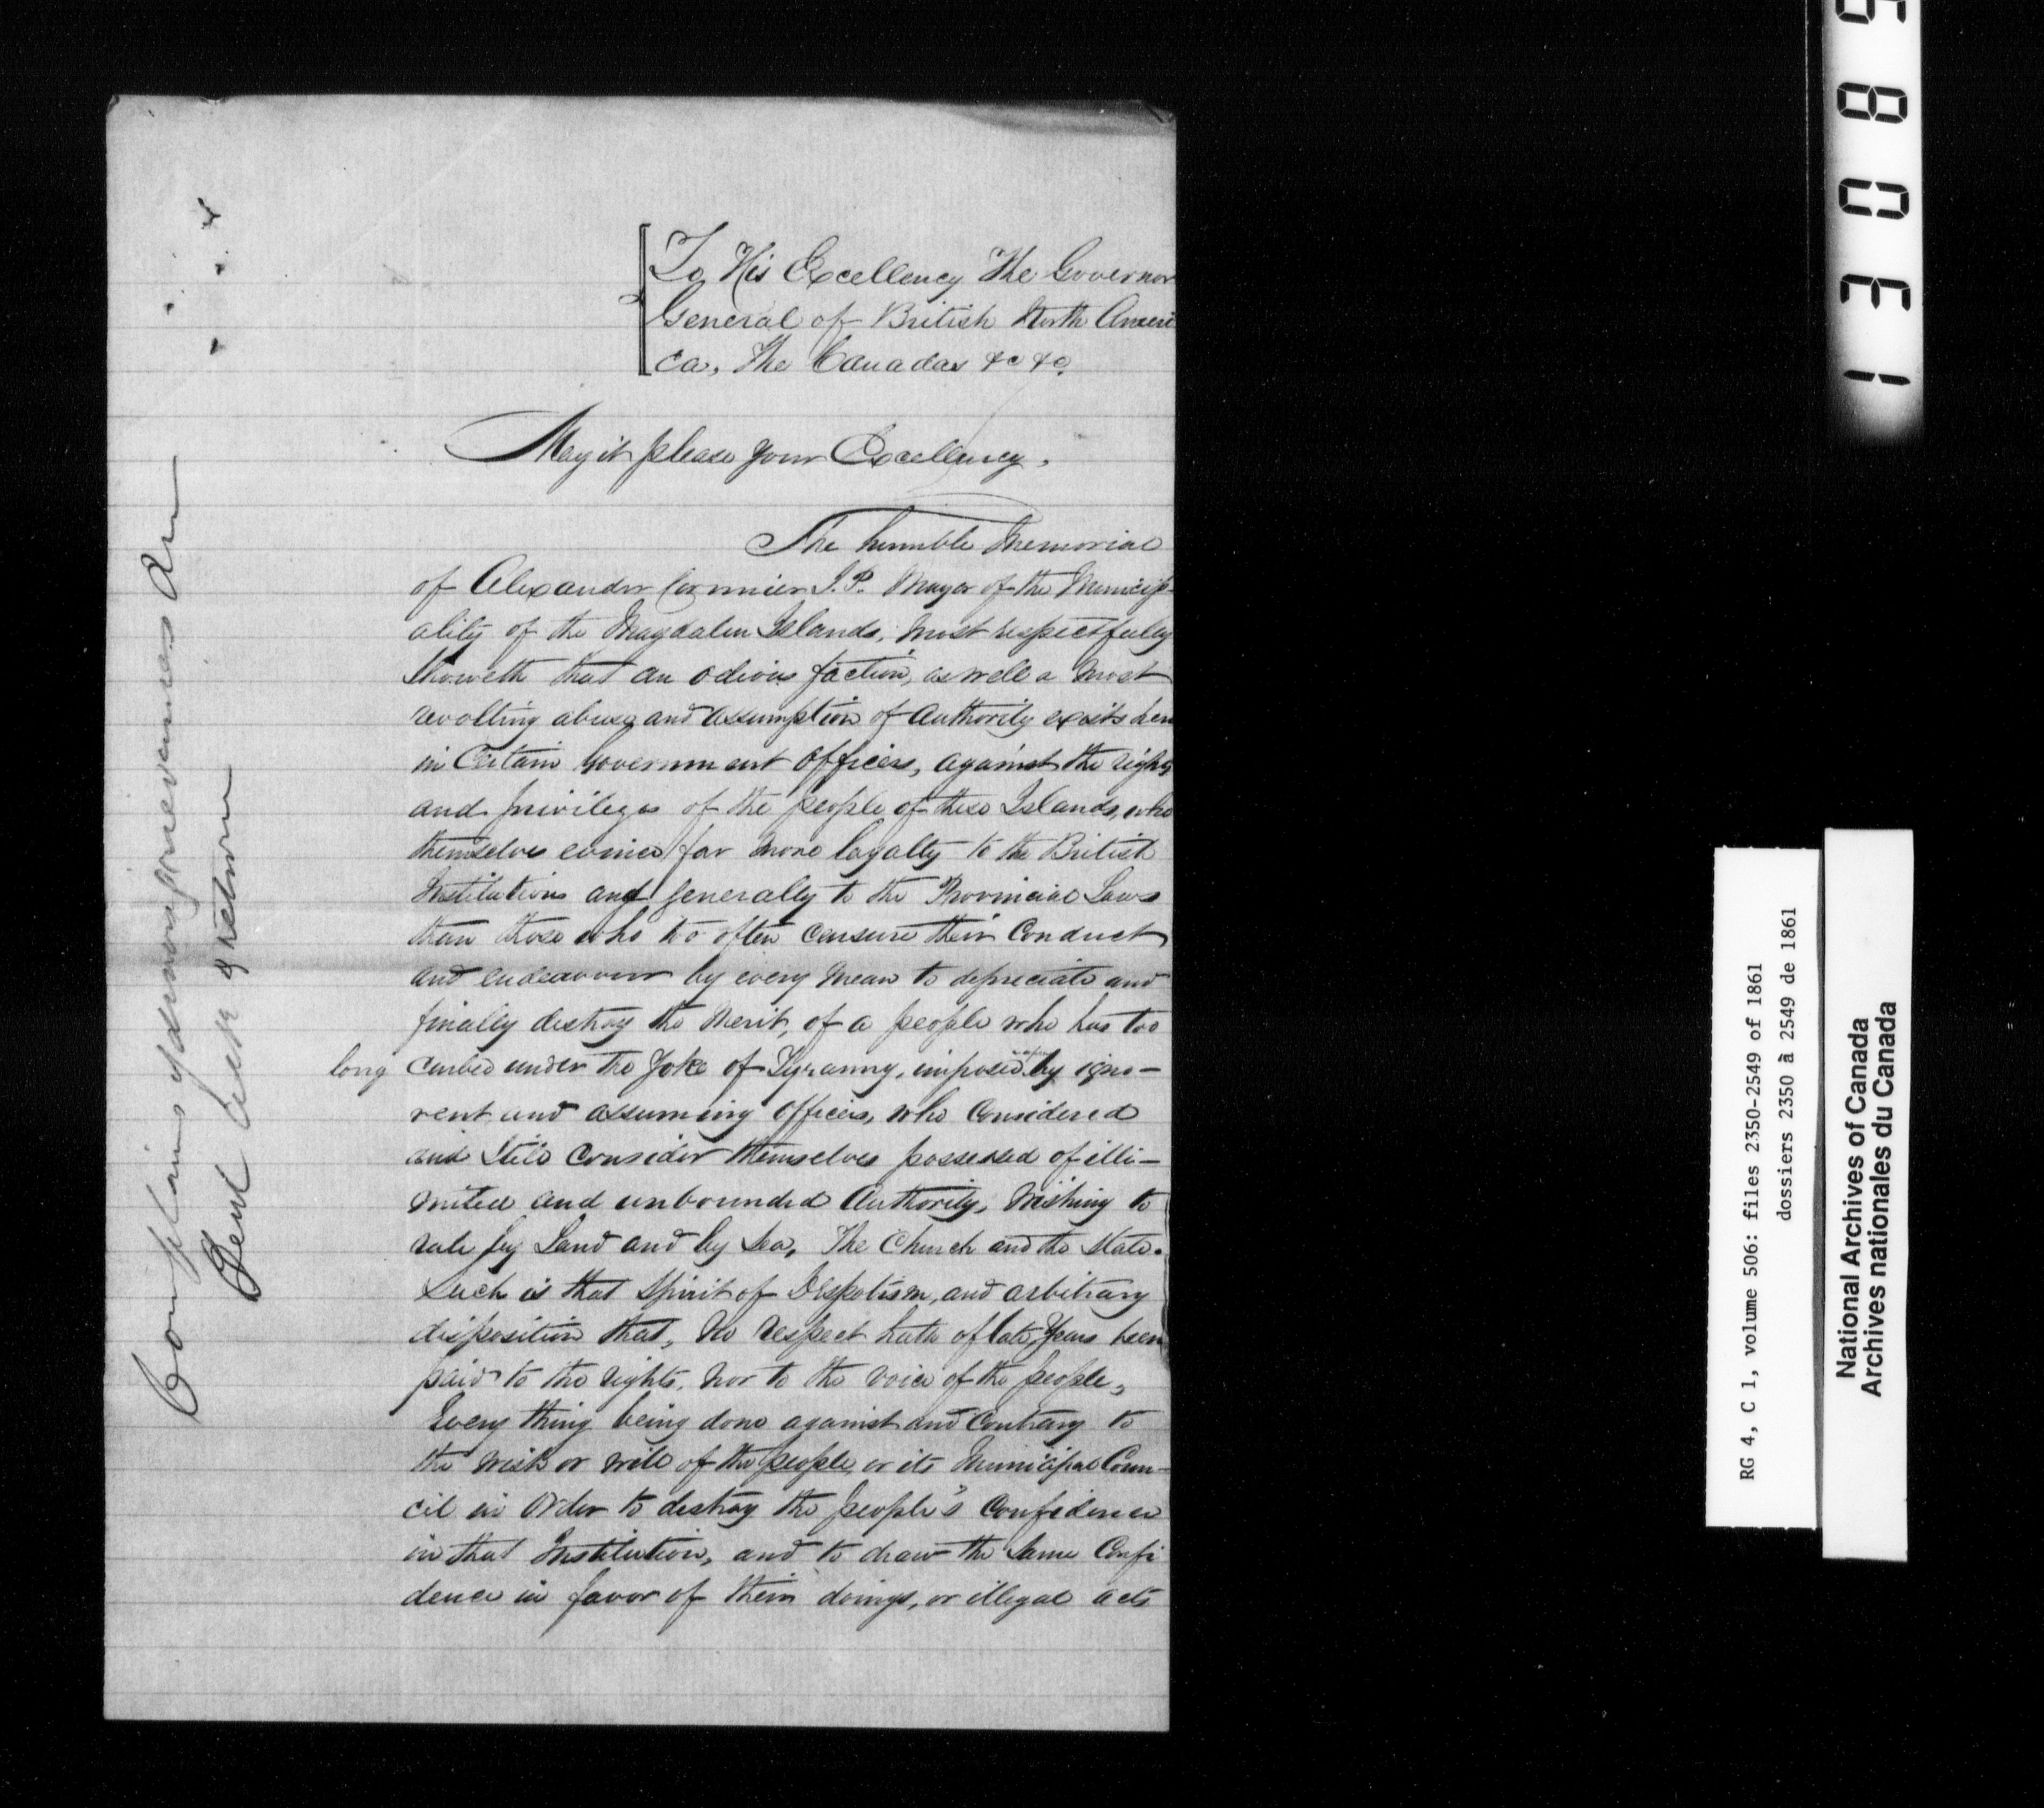 To His Excellency The Governor
General of British North Ameri
ca, The Canadas &c &c.
May it please your Excellency.
The humble Memorial
of Alexander Cormier J.P. Mayor of the Municip-
ality of the Magdalen Islands, most respectfully
Showeth that an odious faction, as well a most
revolting abuse and assumption of Authority exists here
in Certain Government Officers, against the rights
and privileges of the people of these Islands, who
themselves evince far more loyalty to the British
Institutions and generally to the Provincial Laws
than those who too often censure their Conduct
and endeavour by every mean to depreciate and
finally destroy the Merit, of a people who has too
long curbed under the Yoke of Tyranny, imposed by igno-
rent and assuming Officers, who Considered
and Still Consider themselves possessed of illi-
mited and unbounded Authority, Wishing to
rule by Land and by Sea, The Church and the State.
Such is that Spirit of Despotism, and arbitrary
disposition that, No respect hath of late Years been
paid to the rights, nor to the voice of the people,
Every thing being done against and Contrary to
the wish or will of the people, or its Municipal Coun-
cil in Order to destroy the people's Confidence
in that Institution, and to draw the Same Confi
dence in favor of their doings, or illegal acts
Complains of
13089
RG 4, C 1, volume 506: files 2350-2549 of 1861
dossiers 2350 à 2549 de 1861
National Archives of Canada
Archives nationales du Canada